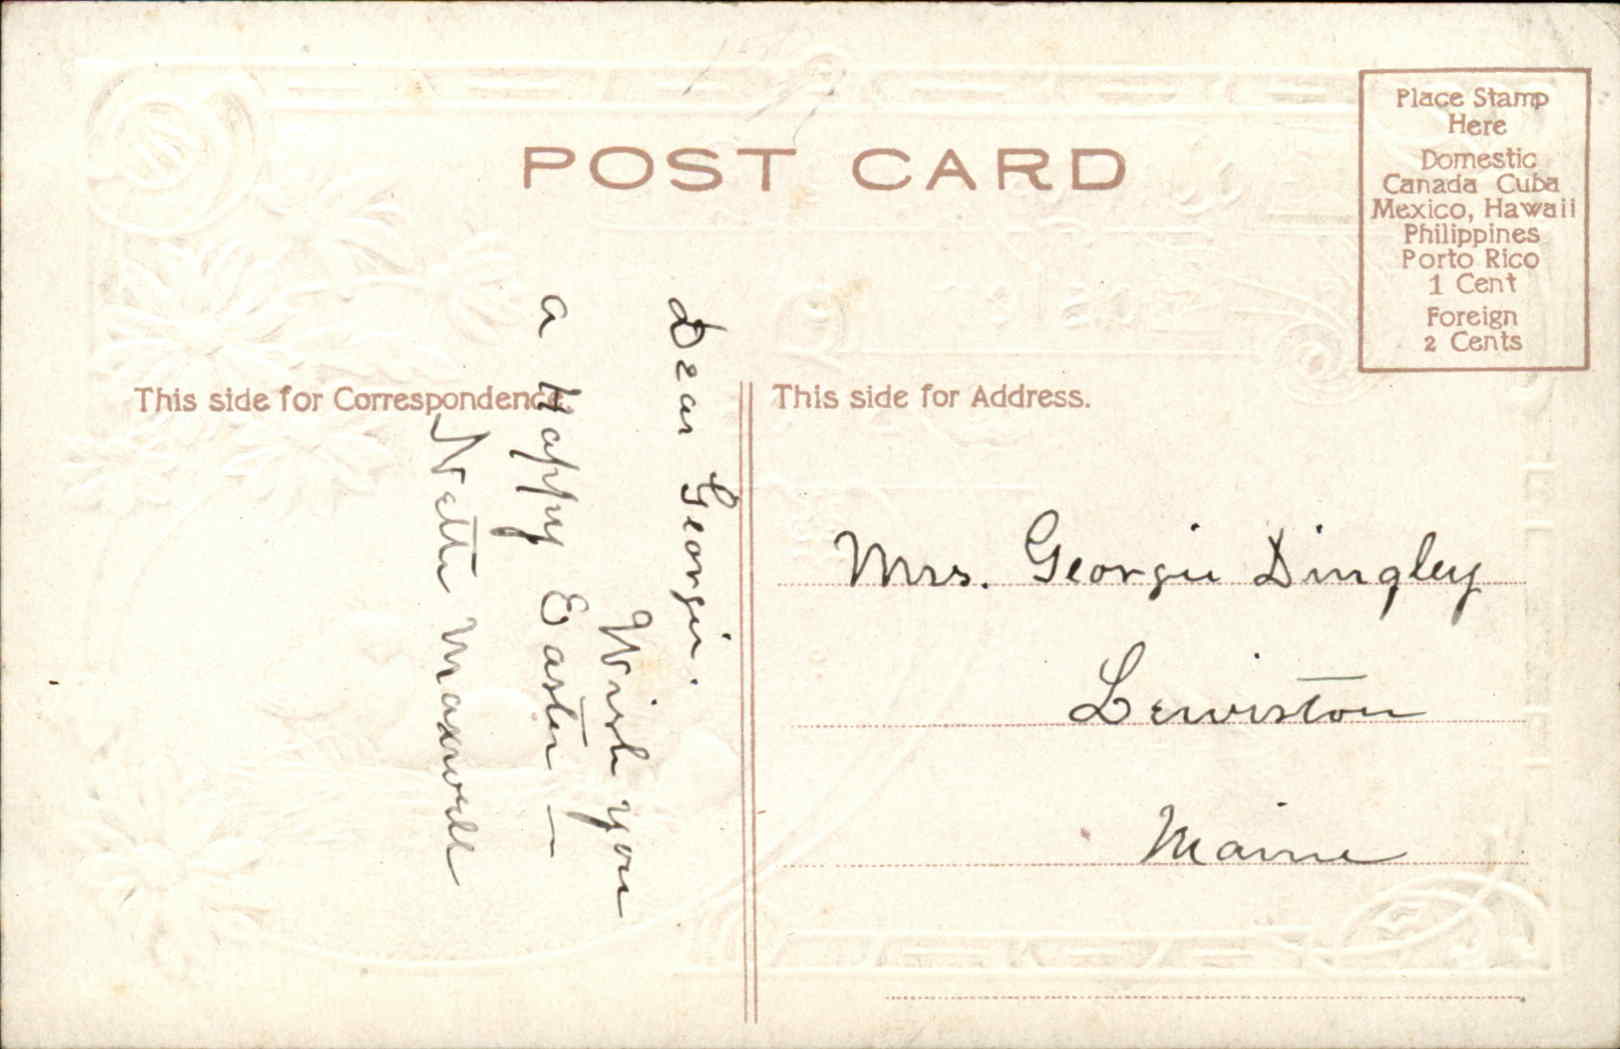 POST CARD
Place Stamp
Here
Domestic
Canada Cuba
Mexico, Hawaii
Philippines
Porto Rico
1 Cent
Foreign
2 Cents
This side for Correspondence.
This side for Address.
Dear Georgie.
Wish you
a Happy Easter —
Nettie Maxwell
Mrs. Georgie Dingley
Lewiston
Maine